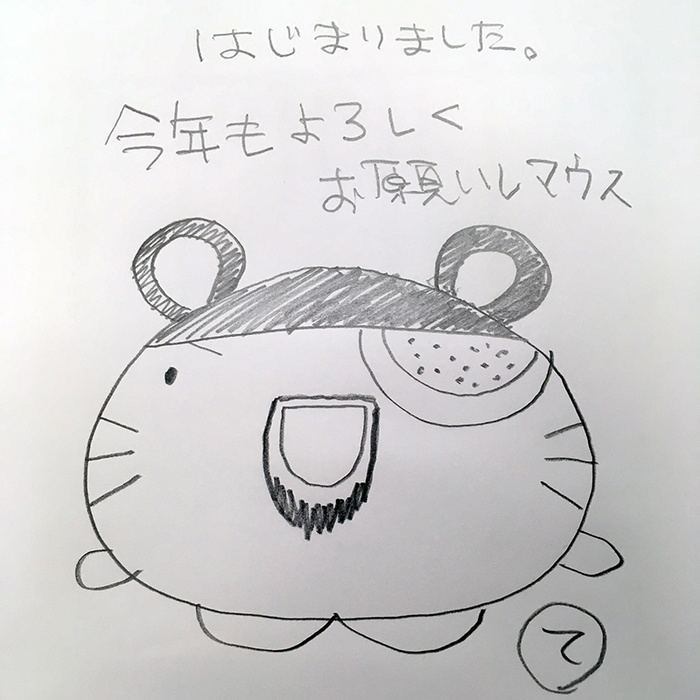 はじまりました。
今年もよろしく
お願いしマウス
て